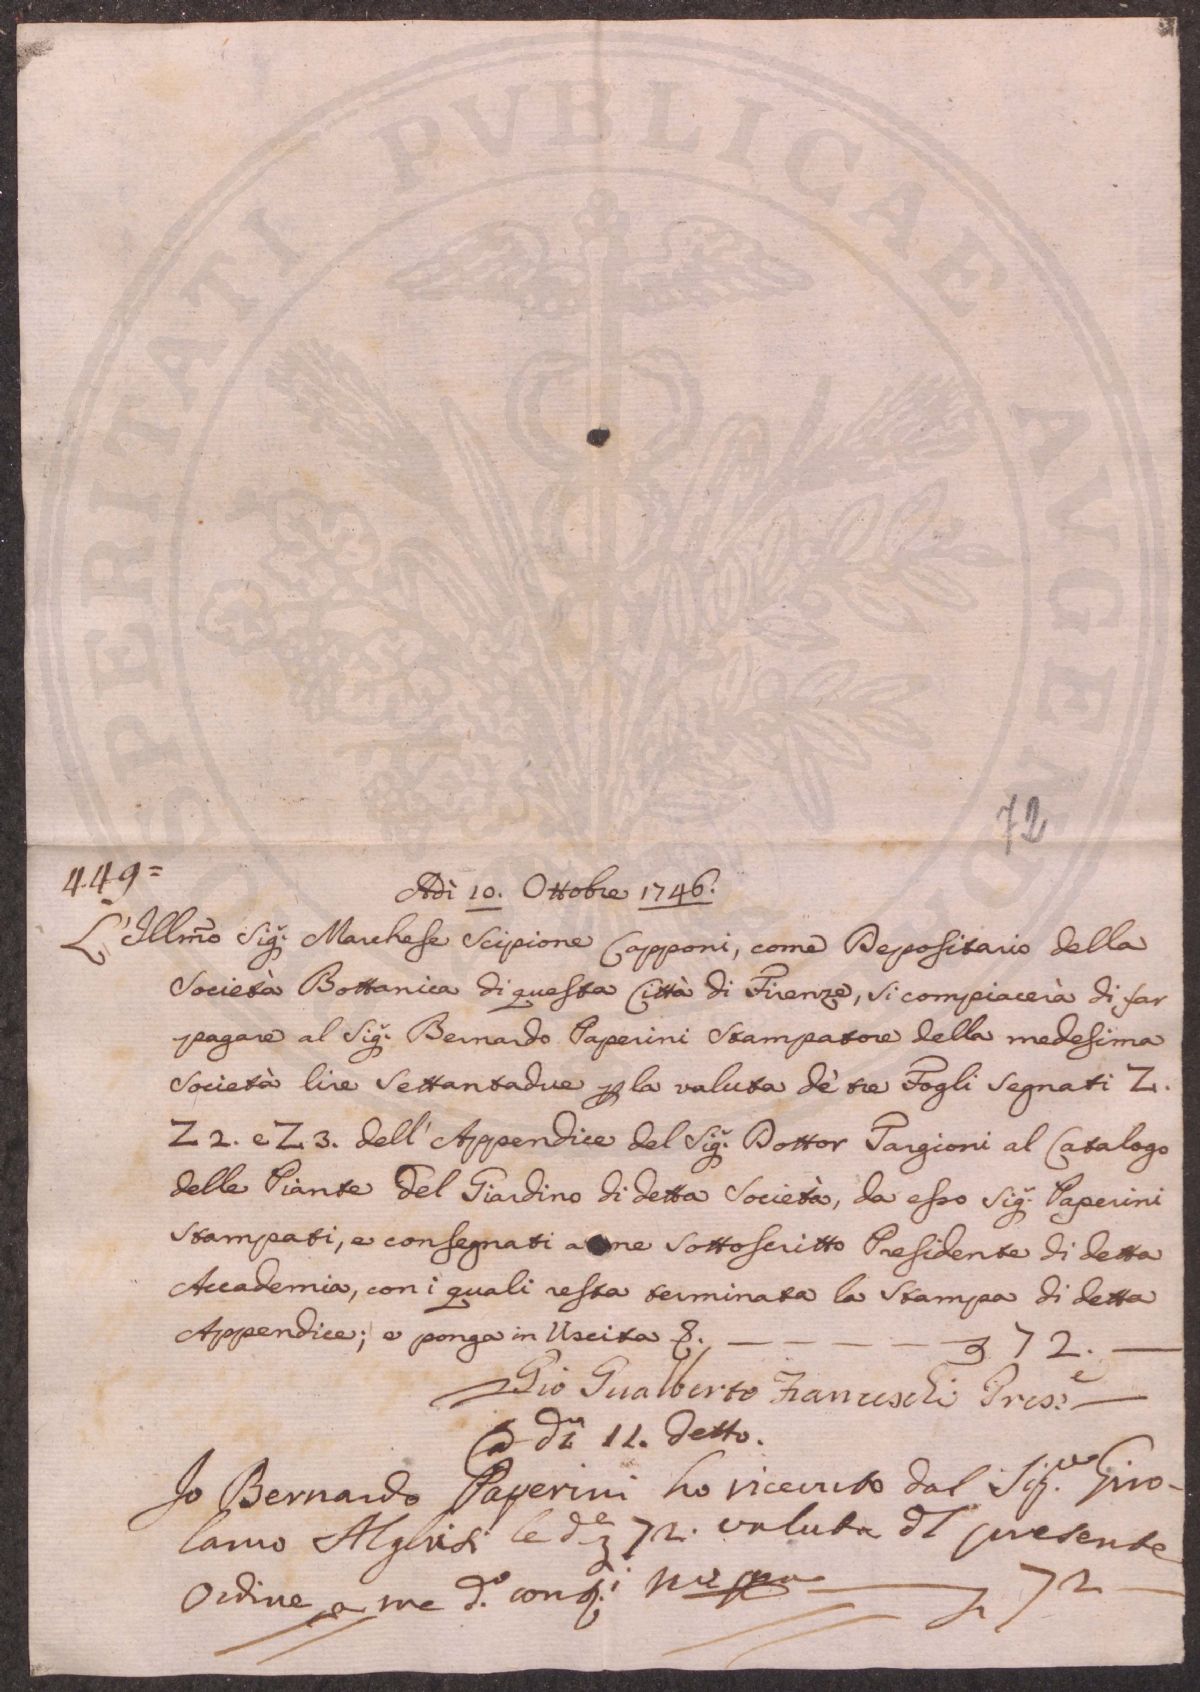 PROSPERITATI PVBLICAE AVGENDAE
72
449=
Adì 10. Ottobre 1746.
L'Illmo Sig.r Marchese Scipione Capponi, come Depositario della
Società Bottanica di questa Città di Firenze, si compiacerà di far
pagare al Sig.r Bernardo Paperini Stampatore della medesima
Società lire Settantadue p la valuta dè tre Fogli segnati Z.
Z 2. e Z 3. dell' Appendice del Sig.r Dottor Targioni al Catalogo
delle Piante del Giardino di detta Società, da esso Sig.r Paperini
stampati, e consegnati a me Sottoscritto Presidente di detta
Accademia, con i quali resta terminata la Stampa di detta
Appendice; e ponga in Uscita £. — — — — — £ 72. —
Gio Gualberto Franceschi Pres.e
A dì 11. detto.
Io Bernardo Paperini ho riceuto dal Sig.re Giro-
lamo Alghisi le d.e £ 72. valuta dl presente
Ordine a me d.o con.ti £ 72 —